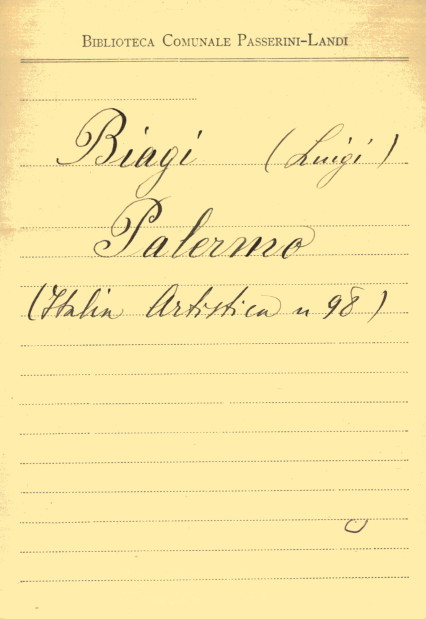 BIBLIOTECA COMUNALE PASSERINI-LANDI
Biagi (Luigi)
Palermo
(Italia Artistica n 98)